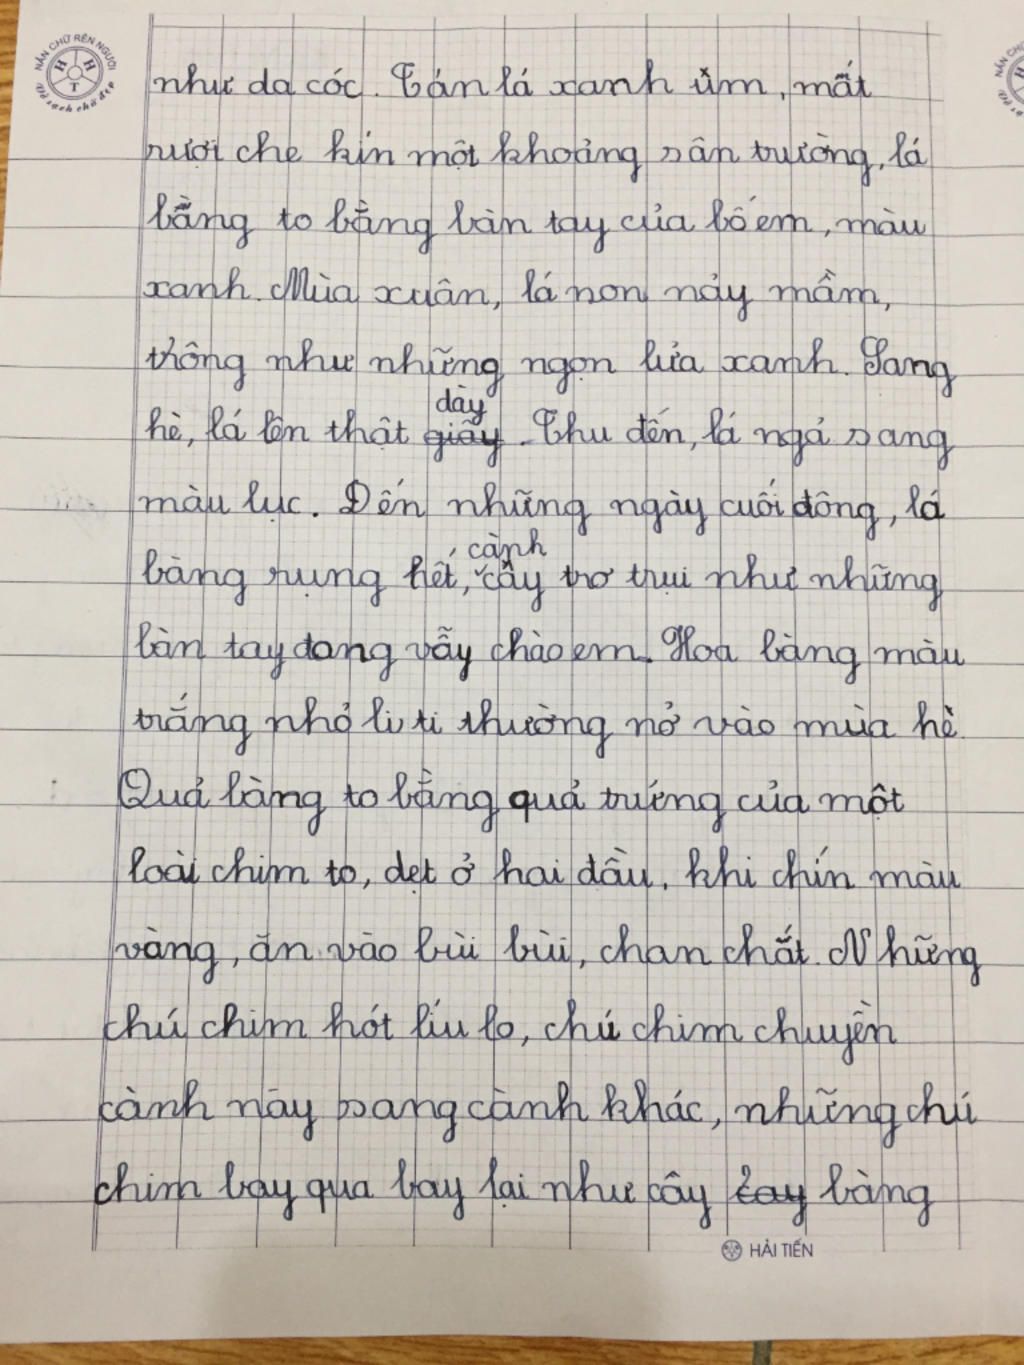 NẮN CHỮ RÈN NGƯỜI
H H T
Vở sạch chữ đẹp
như da cóc. Tán lá xanh ủm, mất
rượi che kín một khoảng sân trường, lá
bằng to bằng bàn tay của bố em, màu
xanh. Mùa xuân, lá non nảy mầm,
thông như những ngọn lửa xanh. Sang
dày
hè, lá lên thật giây. Thu đến, lá ngả sang
màu lục. Đến những ngày cuối đông, lá
cành
bàng rụng hết, cây trơ trụi như những
bàn tay dang vẫy chào em. Hoa bàng màu
trắng nhỏ li ti thường nở vào mùa hè.
Quả bàng to bằng quả trứng của một
loài chim to, dẹt ở hai đầu, khi chín màu
vàng, ăn vào bùi bùi, chan chắt. Những
chú chim hót líu lo, chú chim chuyền
cành này sang cành khác, những chú
chim bay qua bay lại như cây bàng
HẢI TIẾN